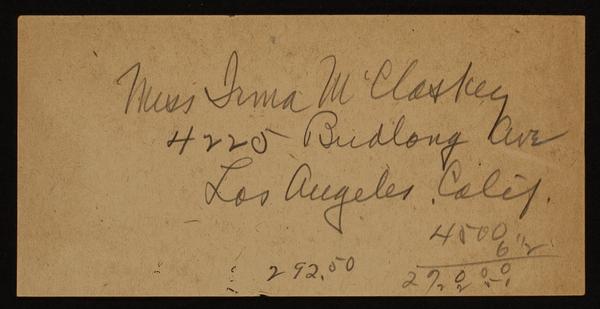 Miss Irma McCloskey
4225 Budlong Ave
Los Angeles, Calif.
4500
6 1/2
292.50